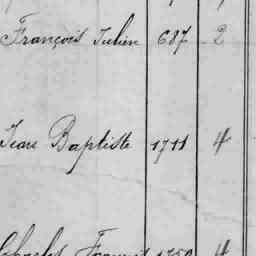 François Julien 687 2
Jean Baptiste 1711 4
Charles François 1750 4